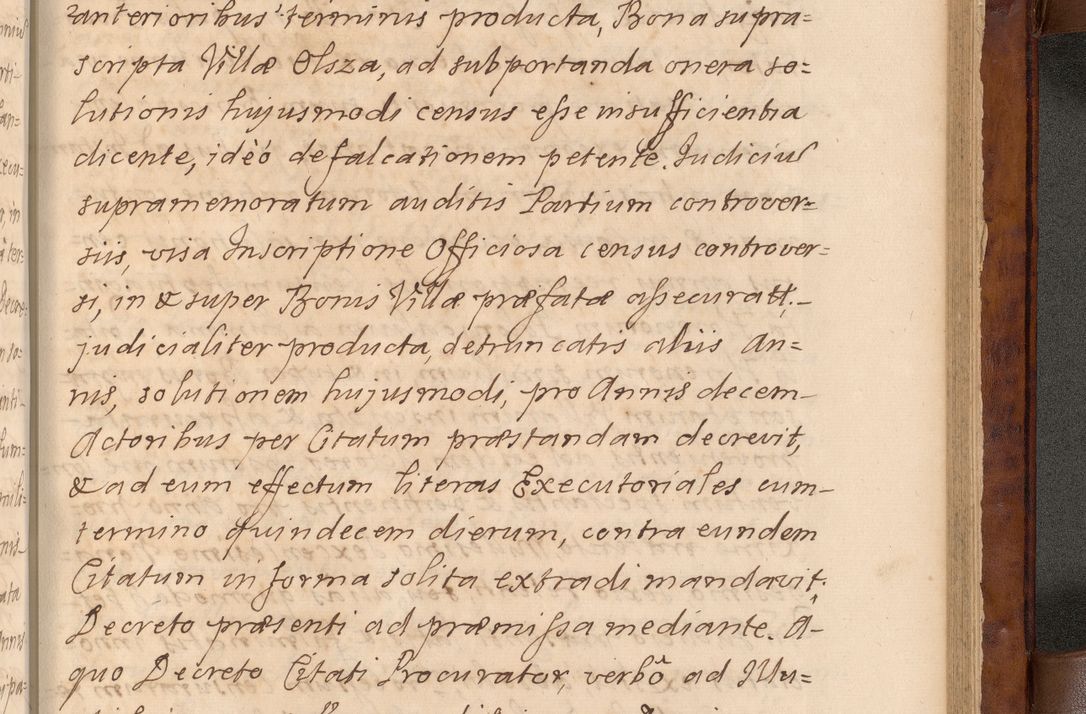 anterioribus terminis producta, Bona supra=
scripta Villæ Olsza, ad subportanda onera so=
lutionis hujusmodi census esse insufficientia
dicente, ideò defalcationem petente. Judiciū
supramemoratum auditis Partium controver=
siis, visa Inscriptione Officiosa census controver=
si, in & super Bonis Villæ præfatæ assecuratt.
judicialiter producta, detruncatis aliis An=
nis, solutionem hujusmodi, pro Annis decem
Actoribus per Citatum præstandam decrevit,
& ad eum effectum literas Executoriales cum
termino quindecem dierum, contra eundem
Citatum in forma solita extradi mandavit,
Decreto præsenti ad præmissa mediante. A
quo Decreto Citati Procurator, verbō ad Illu=